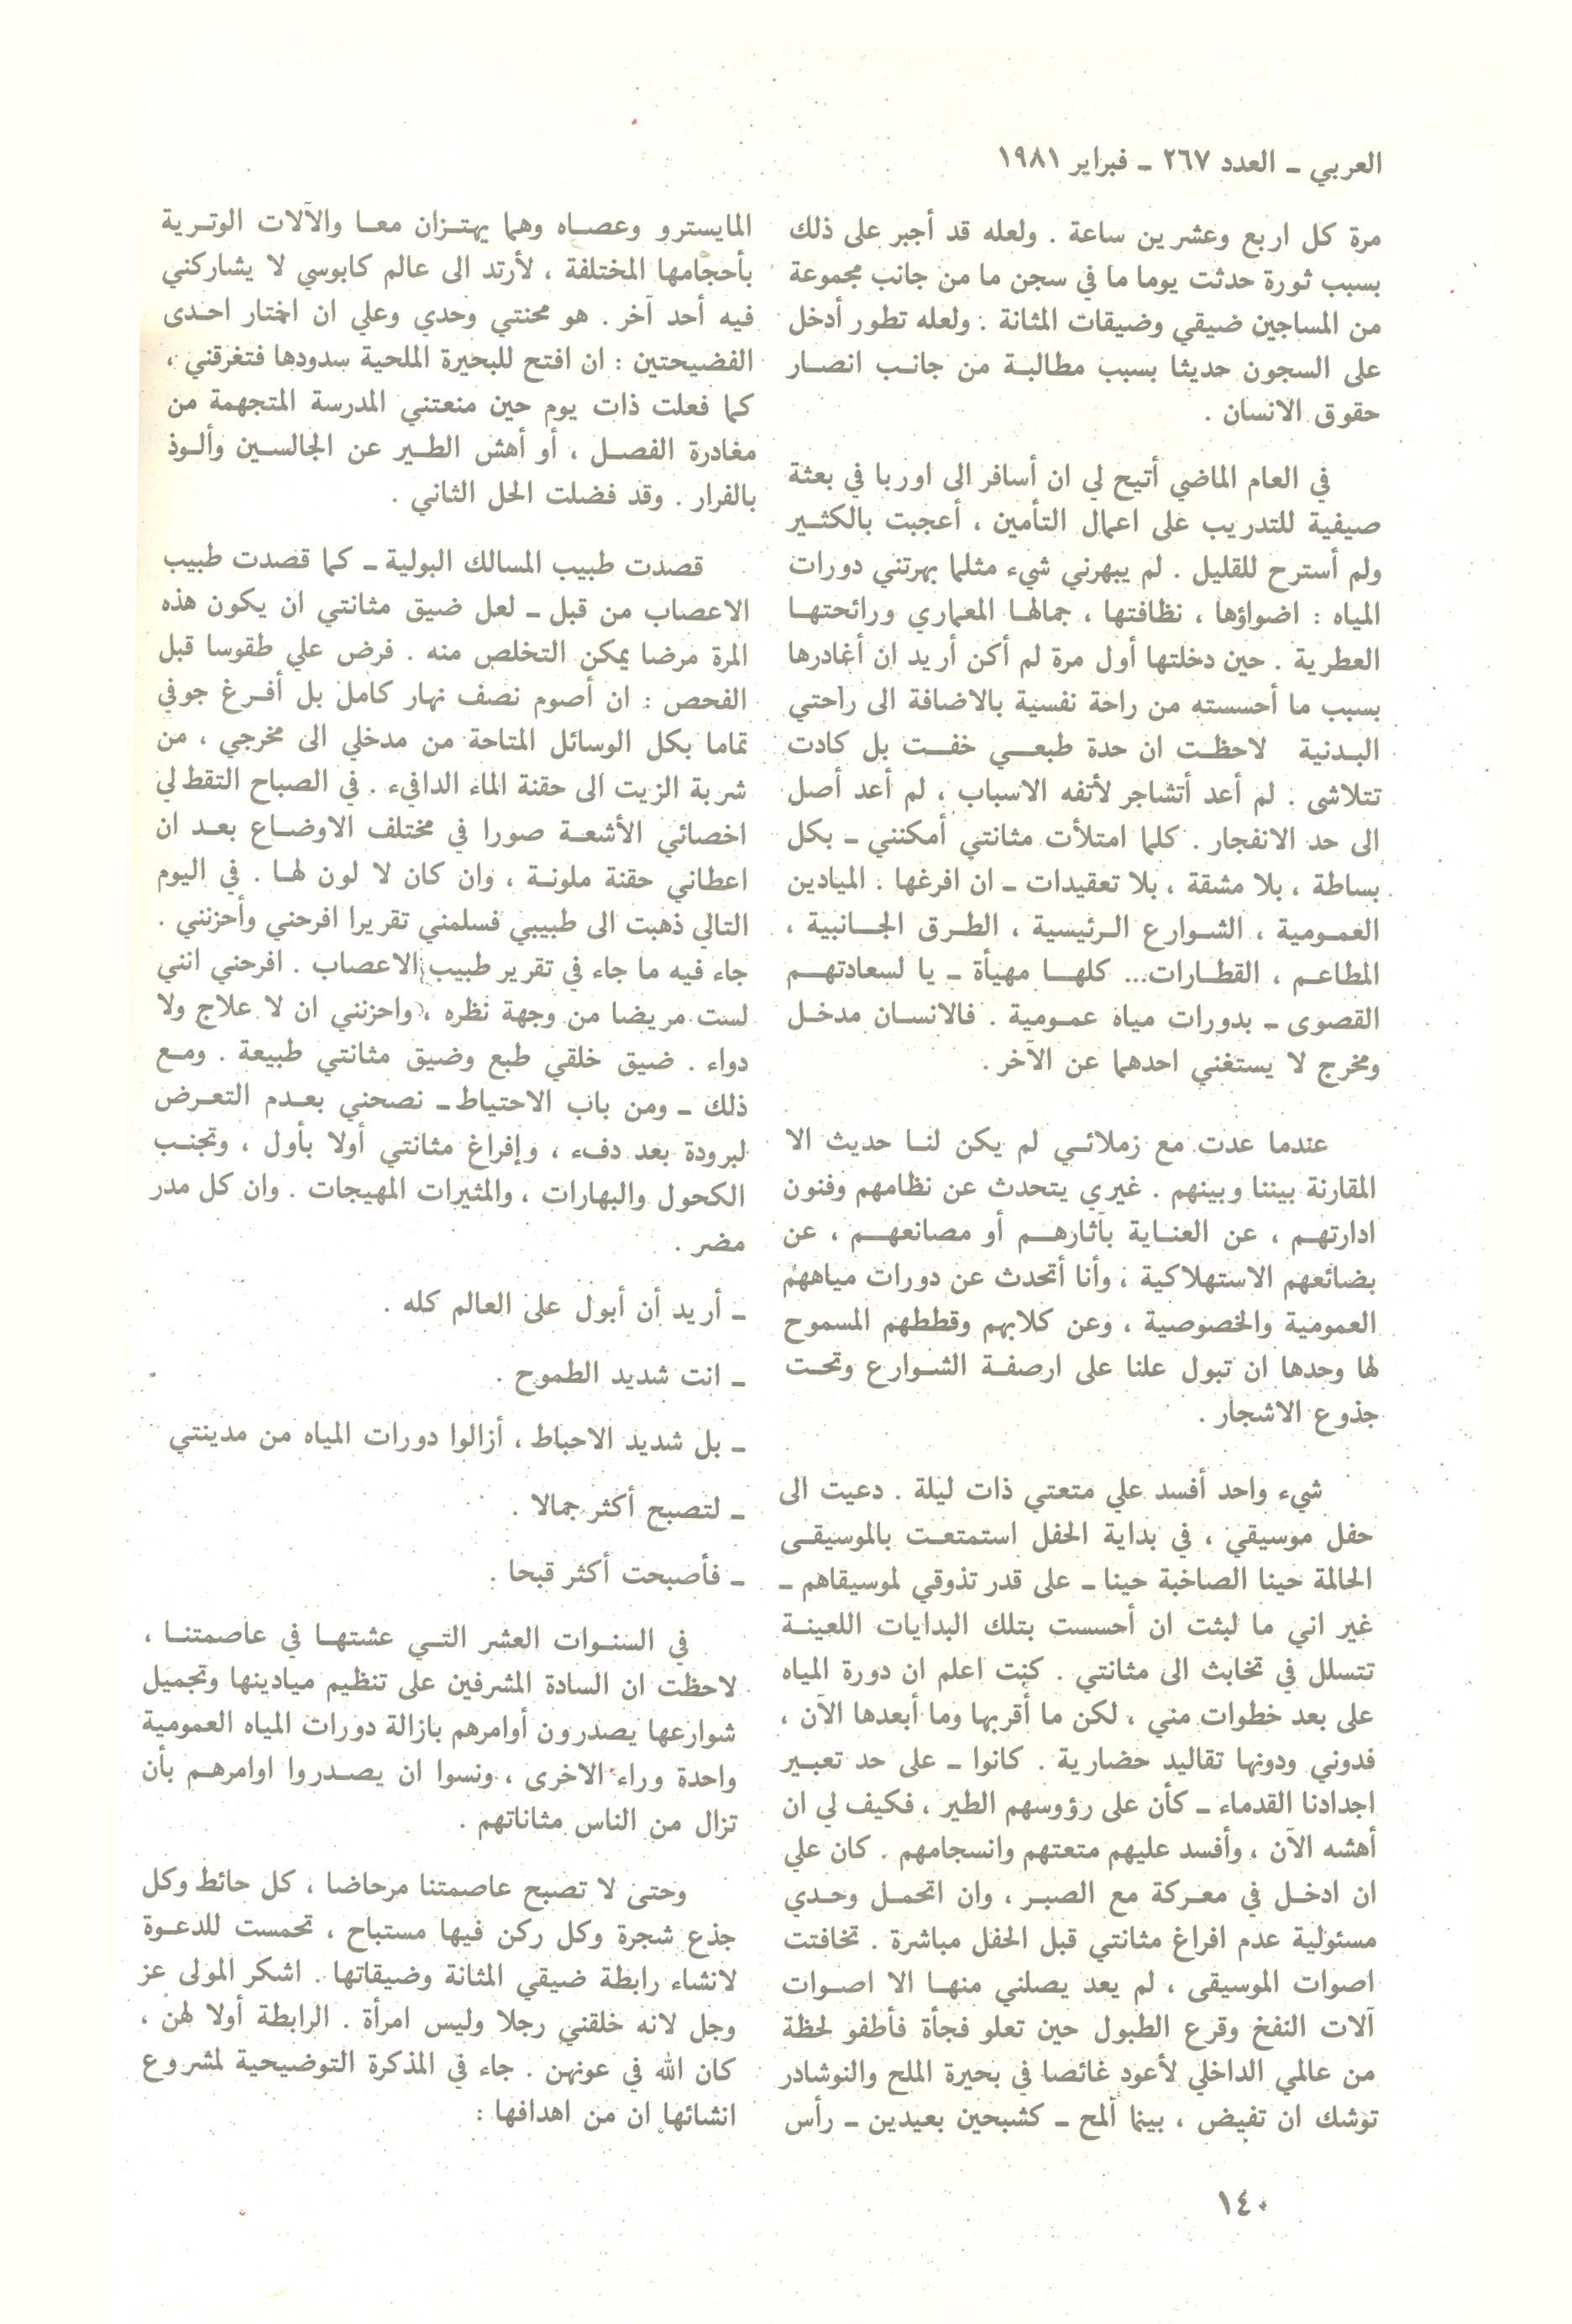 العربي – العدد ٢٦٧ – فبراير ١٩٨١
مرة كل اربع وعشرين ساعة . ولعله قد أجبر على ذلك
بسبب ثورة حدثت يوما ما في سجن ما من جانب مجموعة
من المساجين ضيقي وضيقات المثانة . ولعله تطور أدخل
على السجون حديثا بسبب مطالبة من جانب انصار
حقوق الانسان .
في العام الماضي أتيح لي ان أسافر الى اوربا في بعثة
صيفية للتدريب على اعمال التأمين ، أعجبت بالكثير
ولم أسترح للقليل . لم يبهرني شيء مثلما بهرتني دورات
المياه : اضواؤها ، نظافتها ، جمالها المعماري ورائحتها
العطرية . حين دخلتها أول مرة لم أكن أريد ان أغادرها
بسبب ما أحسسته من راحة نفسية بالاضافة الى راحتي
البدنية لاحظت ان حدة طبعي خفت بل كادت
تتلاشى . لم أعد أتشاجر لأتفه الاسباب ، لم أعد أصل
الى حد الانفجار . كلما امتلأت مثانتي أمكنني – بكل
بساطة ، بلا مشقة ، بلا تعقيدات – ان افرغها . الميادين
العمومية ، الشوارع الرئيسية ، الطرق الجانبية ،
المطاعم ، القطارات... كلها مهيأة – يا لسعادتهم
القصوى – بدورات مياه عمومية . فالانسان مدخل
ومخرج لا يستغني احدهما عن الآخر .
عندما عدت مع زملائي لم يكن لنا حديث الا
المقارنة بيننا وبينهم . غيري يتحدث عن نظامهم وفنون
ادارتهم ، عن العناية بآثارهم أو مصانعهم ، عن
بضائعهم الاستهلاكية ، وأنا أتحدث عن دورات مياههم
العمومية والخصوصية ، وعن كلابهم وقططهم المسموح
لها وحدها ان تبول علنا على ارصفة الشوارع وتحت
جذوع الاشجار .
شيء واحد أفسد علي متعتي ذات ليلة . دعيت الى
حفل موسيقي ، في بداية الحفل استمتعت بالموسيقى
الحالمة حينا الصاخبة حينا – على قدر تذوقي لموسيقاهم –
غير اني ما لبثت ان أحسست بتلك البدايات اللعينة
تتسلل في تخابث الى مثانتي . كنت اعلم ان دورة المياه
على بعد خطوات مني ، لكن ما أقربها وما أبعدها الآن ،
فدوني ودونها تقاليد حضارية . كانوا – على حد تعبير
اجدادنا القدماء – كأن على رؤوسهم الطير ، فكيف لي ان
أهشه الآن ، وأفسد عليهم متعتهم وانسجامهم . كان علي
ان ادخل في معركة مع الصبر ، وان اتحمل وحدي
مسئولية عدم افراغ مثانتي قبل الحفل مباشرة . تخافتت
اصوات الموسيقى ، لم يعد يصلني منها الا اصوات
آلات النفخ وقرع الطبول حين تعلو فجأة فأطفو لحظة
من عالمي الداخلي لأعود غائصا في بحيرة الملح والنوشادر
توشك ان تفيض ، بينما ألمح – كشبحين بعيدين – رأس
المايسترو وعصاه وهما يهتزان معا والآلات الوترية
بأحجامها المختلفة ، لأرتد الى عالم كابوسي لا يشاركني
فيه أحد آخر . هو محنتي وحدي وعلي ان اختار احدى
الفضيحتين : ان افتح للبحيرة الملحية سدودها فتغرقني ،
كما فعلت ذات يوم حين منعتني المدرسة المتجهمة من
مغادرة الفصل ، أو أهش الطير عن الجالسين وألوذ
بالفرار . وقد فضلت الحل الثاني .
قصدت طبيب المسالك البولية – كما قصدت طبيب
الاعصاب من قبل – لعل ضيق مثانتي ان يكون هذه
المرة مرضا يمكن التخلص منه . فرض علي طقوسا قبل
الفحص : ان أصوم نصف نهار كامل بل أفرغ جوفي
تماما بكل الوسائل المتاحة من مدخلي الى مخرجي ، من
شربة الزيت الى حقنة الماء الدافيء . في الصباح التقط لي
اخصائي الأشعة صورا في مختلف الاوضاع بعد ان
اعطاني حقنة ملونة ، وان كان لا لون لها . في اليوم
التالي ذهبت الى طبيبي فسلمني تقريرا افرحني وأحزنني .
جاء فيه ما جاء في تقرير طبيب الاعصاب . افرحني انني
لست مريضا من وجهة نظره ، واحزنني ان لا علاج ولا
دواء . ضيق خلقي طبع وضيق مثانتي طبيعة . ومع
ذلك – ومن باب الاحتياط – نصحني بعدم التعرض
لبرودة بعد دفء ، وإفراغ مثانتي أولا بأول ، وتجنب
الكحول والبهارات ، والمثيرات المهيجات . وان كل مدر
مضر .
– أريد أن أبول على العالم كله .
– انت شديد الطموح .
– بل شديد الاحباط ، أزالوا دورات المياه من مدينتي
– لتصبح أكثر جمالا .
– فأصبحت أكثر قبحا .
في السنوات العشر التي عشتها في عاصمتنا ،
لاحظت ان السادة المشرفين على تنظيم ميادينها وتجميل
شوارعها يصدرون أوامرهم بازالة دورات المياه العمومية
واحدة وراء الاخرى ، ونسوا ان يصدروا اوامرهم بأن
تزال من الناس مثاناتهم .
وحتى لا تصبح عاصمتنا مرحاضا ، كل حائط وكل
جذع شجرة وكل ركن فيها مستباح ، تحمست للدعوة
لانشاء رابطة ضيقي المثانة وضيقاتها . اشكر المولى عز
وجل لانه خلقني رجلا وليس امرأة . الرابطة أولا لهن ،
كان الله في عونهن . جاء في المذكرة التوضيحية لمشروع
انشائها ان من اهدافها :
١٤٠